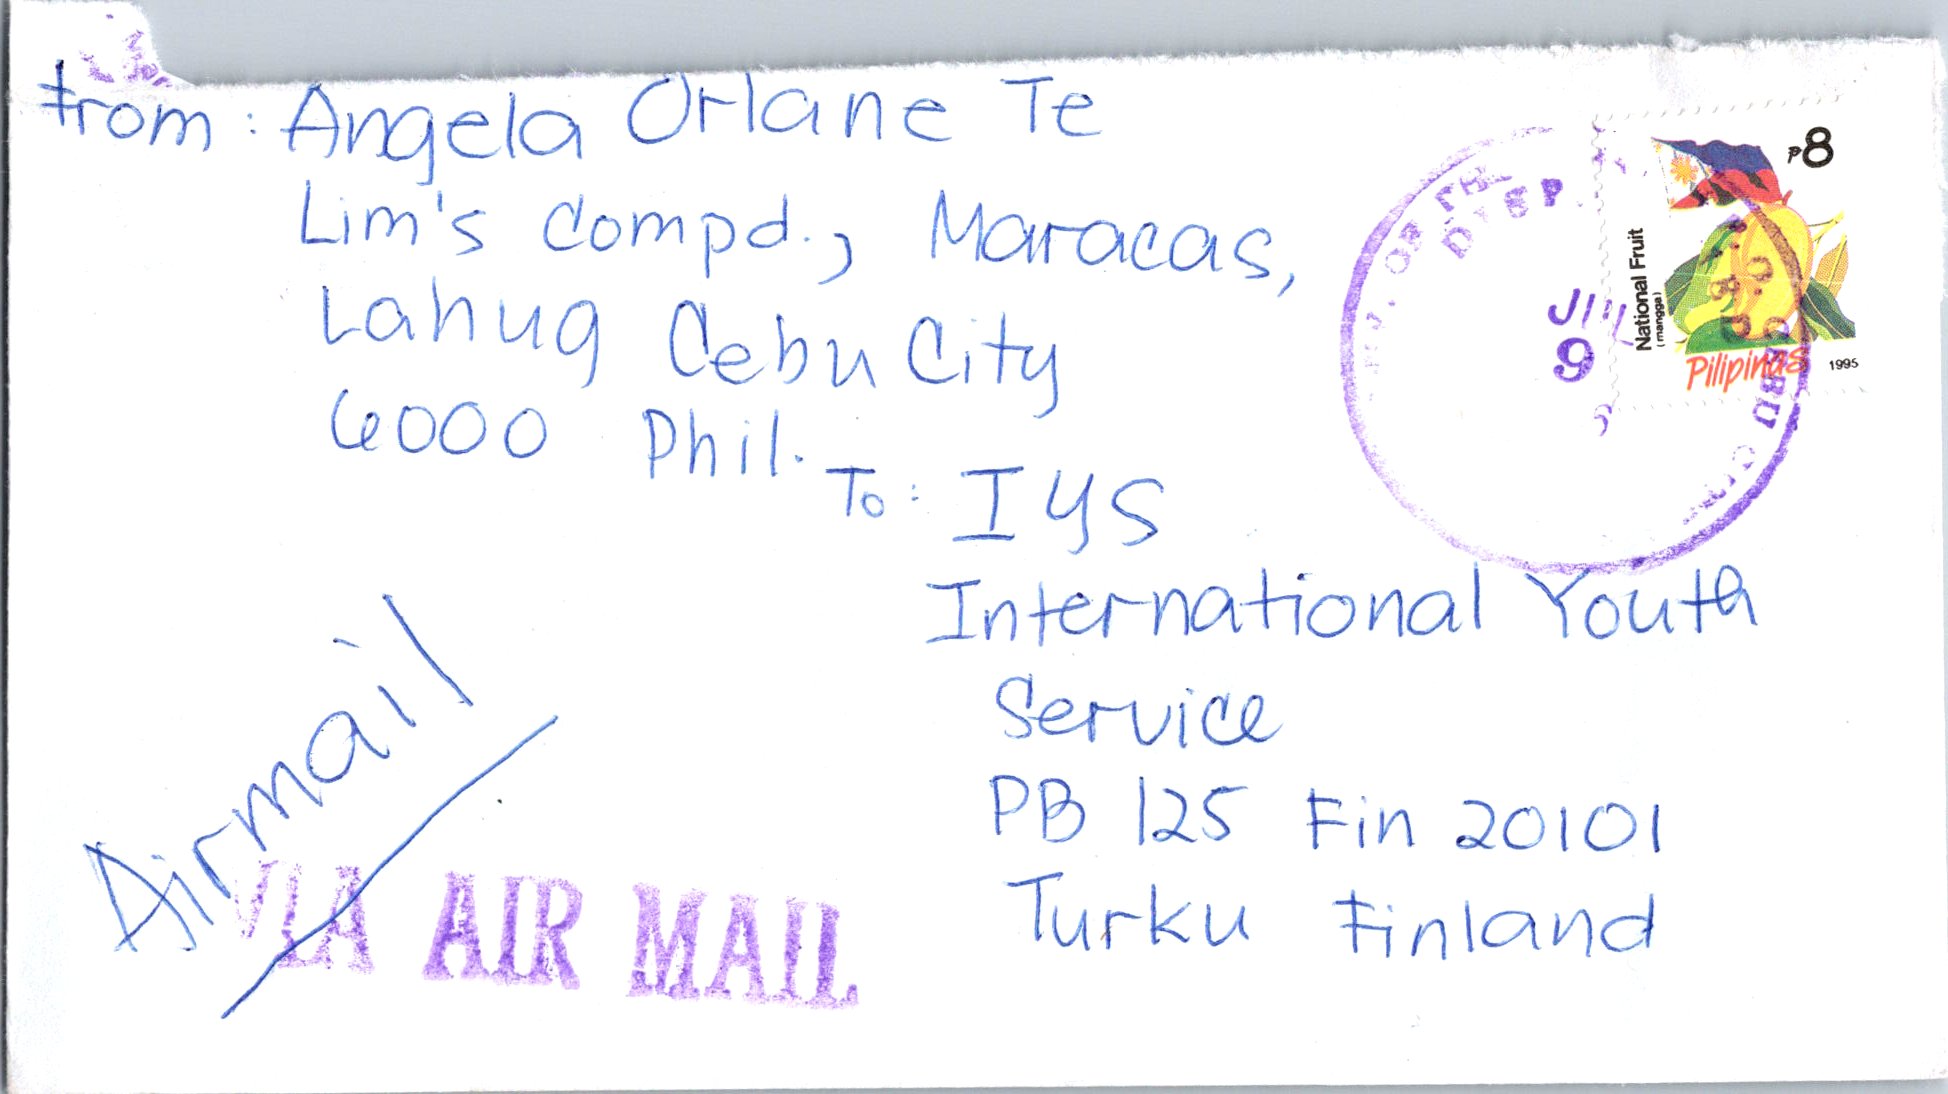 From: Angela Orlane Te
Lim's Compd., Maracas,
Lahug Cebu City
6000 Phil.
To: IYS
International Youth
Service
PB 125 Fin 20101
Turku Finland
Airmail
VIA AIR MAIL
₱8
National Fruit
(mangga)
Pilipinas
1995
JUL
9
CEBU CITY